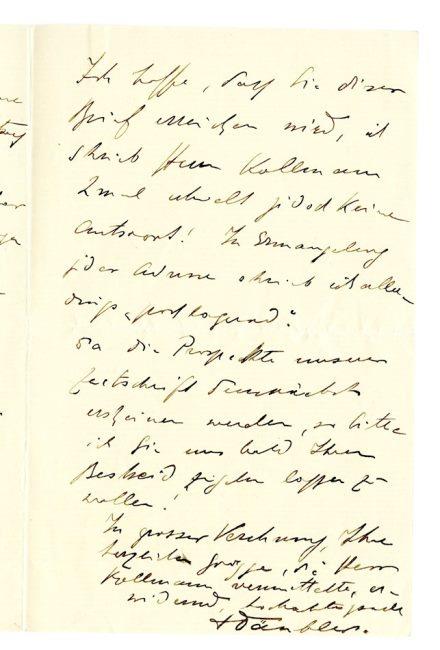 Ich hoffe, dass Sie dieser
Brief erreichen wird, ich
schrieb Herrn Kollmann
2mal erhielt jedoch keine
Antwort! In Ermangelung
jeder Adresse schrieb ich aller-
dings „postlagernd".
Da die Prospekte unserer
Zeitschrift demnächst
erscheinen werden, so bitte
ich Sie uns bald Ihren
Bescheid zugehen lassen zu
wollen!
In grosser Verehrung, Ihre
herzlichen Grüsse, die Herr
Kollmann vermittelte, er-
widernd,
Däubler.